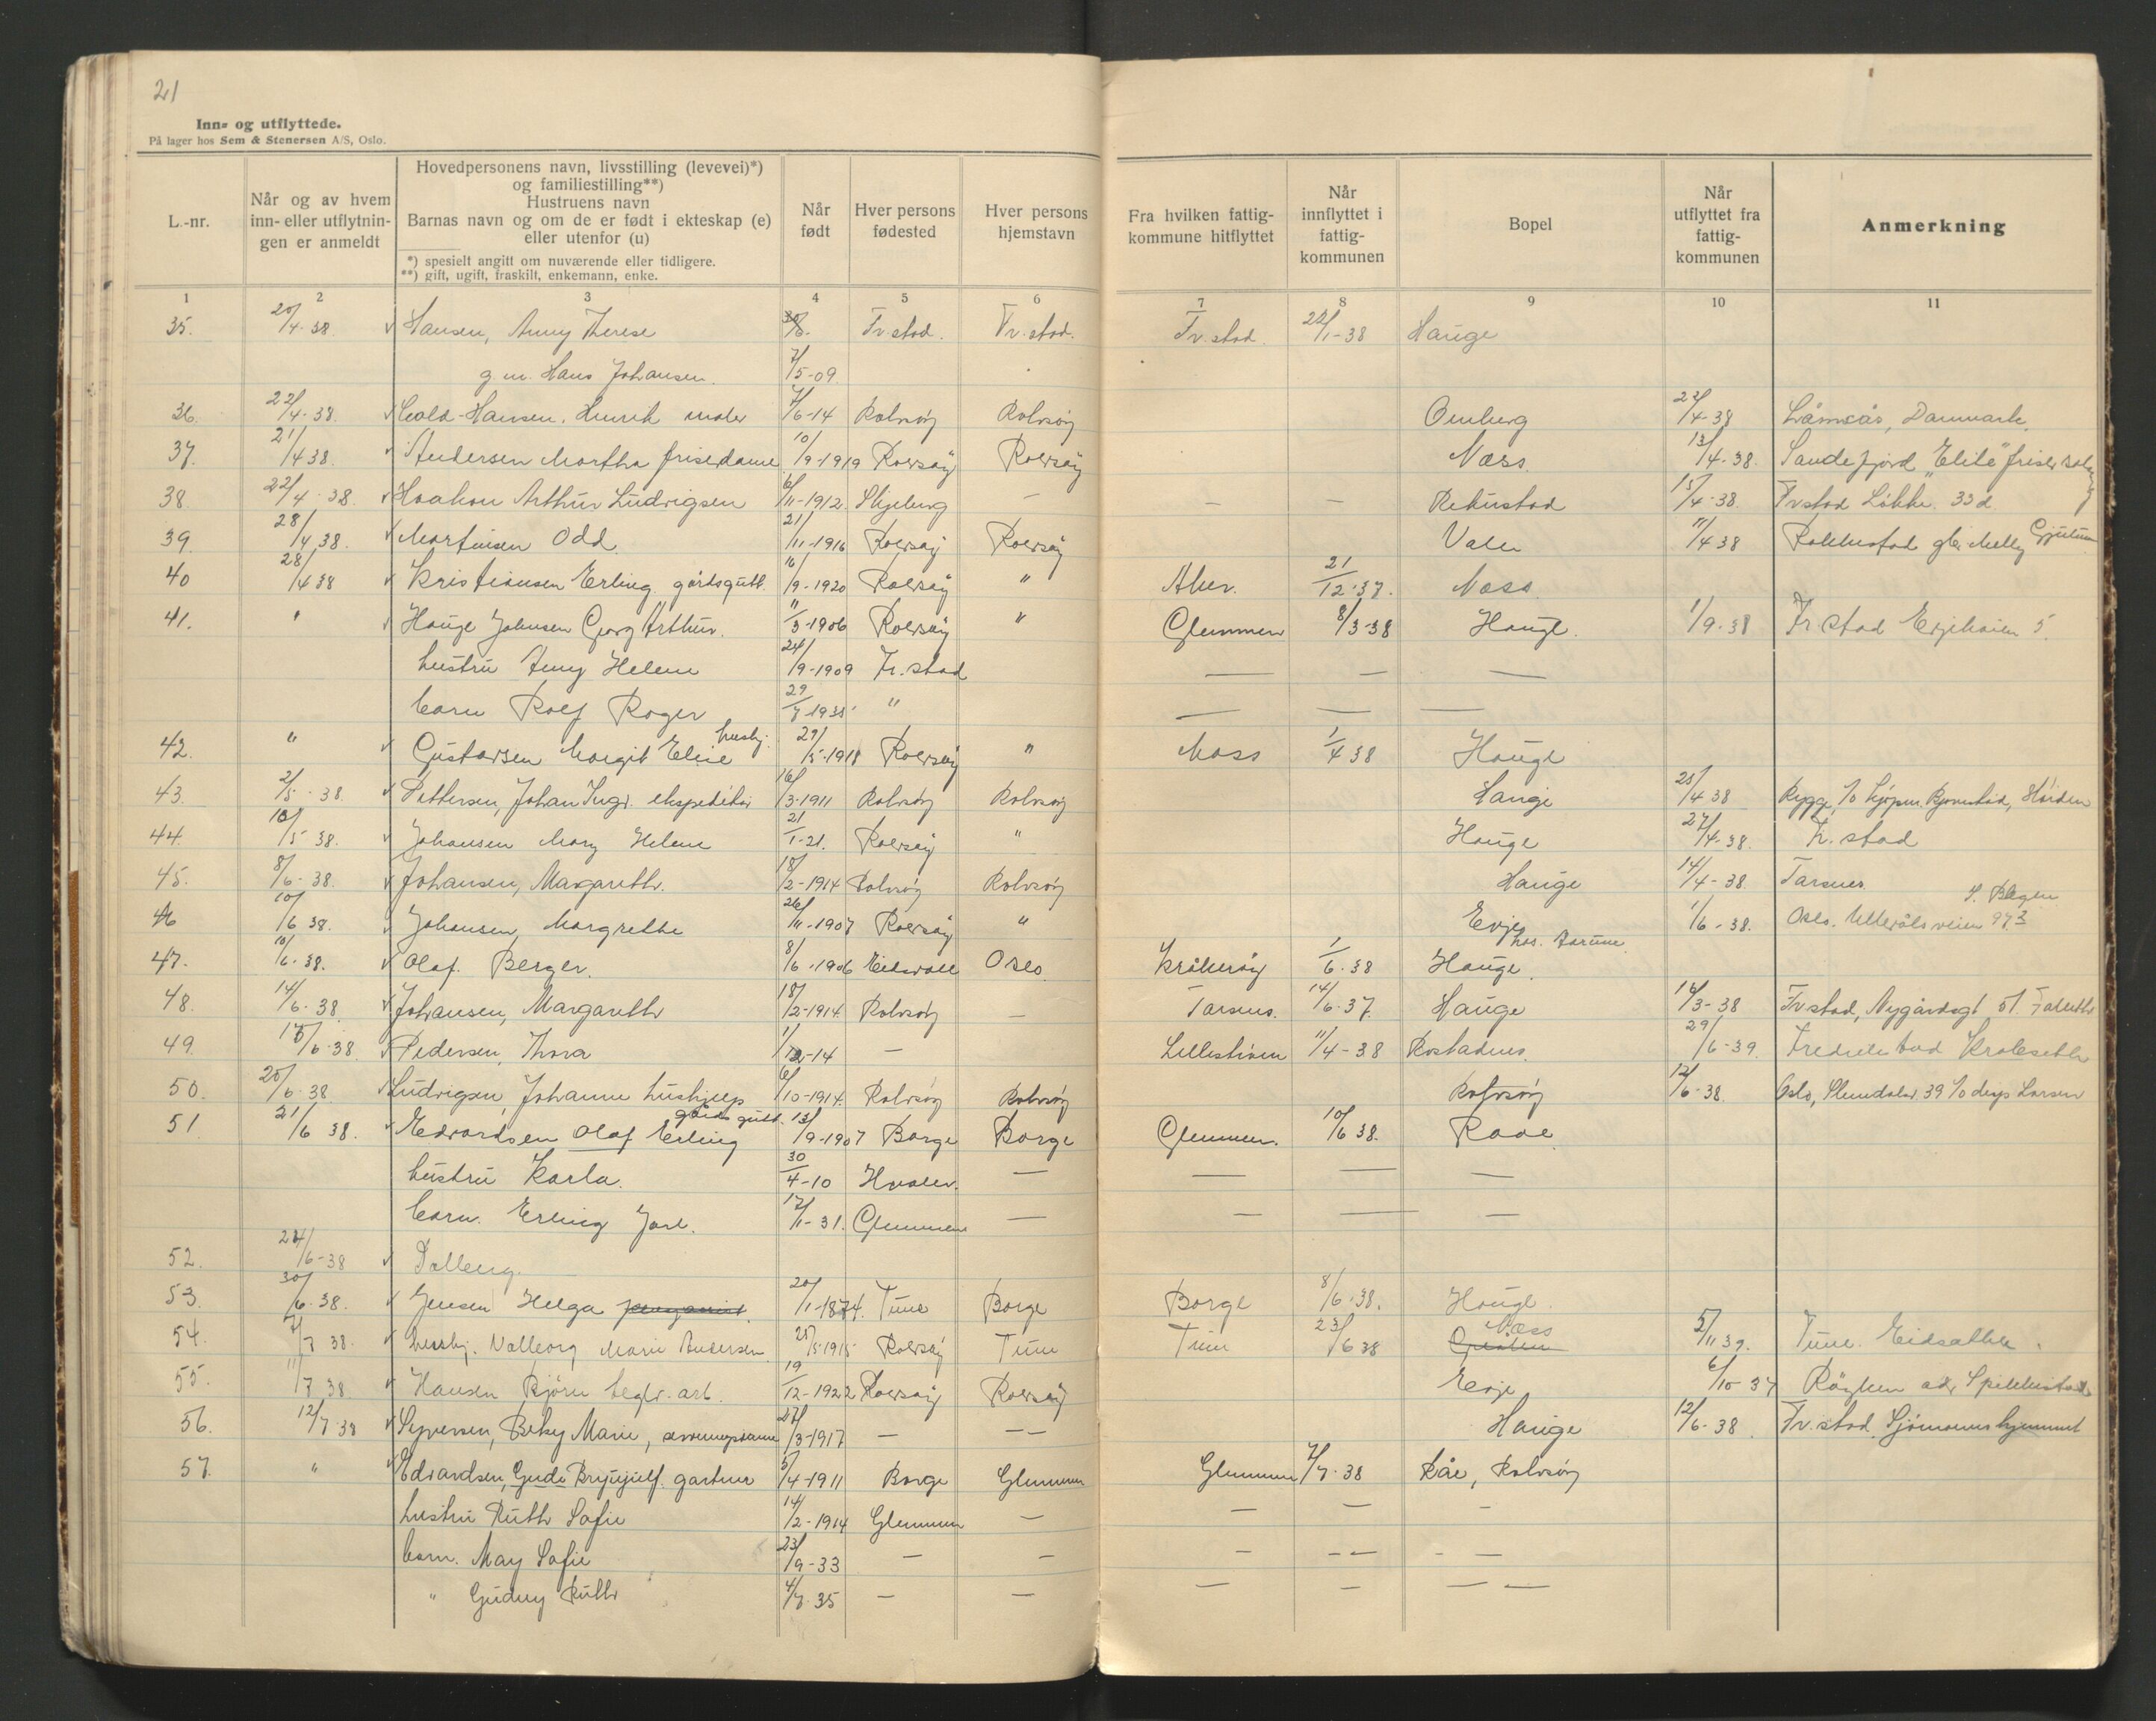 21
Inn- og utflyttede.
På lager hos Sem & Stenersen A/S, Oslo.
L.-nr.
Når og av hvem inn- eller utflytnin-gen er anmeldt
Hovedpersonens navn, livsstilling (levevei)*) og familiestilling**) Hustruens navn Barnas navn og om de er født i ekteskap (e) eller utenfor (u)
*) spesielt angitt om nuværende eller tidligere.
**) gift, ugift, fraskilt, enkemann, enke.
Når født
Hver persons fødested
Hver persons hjemstavn
Fra hvilken fattig-kommune hitflyttet
Når innflyttet i fattig-kommunen
Bopel
Når utflyttet fra fattig-kommunen
Anmerkning
1 2 3 4 5 6 7 8 9 10 11
35. 20/4-38. Hansen, Anny Therese Fr.stad. Fr.stad. Fr.stad. 22/1-38 Hauge
g.m. Hans Johansen. 7/5-09
36. 22/4-38. Hansen, Henrik 7/6-14 Rolvsøy Rolvsøy Omberg 22/4-38 Danmark.
37. 21/4 38. Andersen Martha friserdame 10/9-1919 Rolvsøy Rolvsøy Næss 13/4-38. Sandefjord "Elite" friser
38. 22/4-38. Haakon Arthur Ludvigsen 6/11-1912. Skjeberg — — — Rekustad 15/4-38. Frstad Løkke 33d
39. 28/4 38. Martinsen Odd. 21/11-1916 Rolvsøy Rolvsøy Valle 11/4 38 Melby
40 28/4 38 Kristiansen Erling gårdsgutt. 16/9-1920 Rolvsøy " Aker. 21/12-37. Næss
41. " Hauge Johnsen Georg Arthur. 11/3-1906 Rolvsøy " Glemmen 8/3-38 Hauge. 1/9-38 Fr stad 5.
hustru Anny Helene 24/9-1909 Fr. stad — — —
barn Rolf Roger 29/7-1935 " — — —
42. " Gustavsen Margit Elise hushj. 29/5-1918 Rolvsøy " Moss 1/4 38 Hauge
43. 2/5-38. Pettersen, Johan Ingv. ekspeditør 16/3-1911 Rolvsøy Rolvsøy Hauge 25/4 38 Rygge, c/o kjøpm. Bjørnstad, Halden
44. 10/5 38. Johansen Mary Helene 21/1-21. Rolvsøy " Hauge 27/4-38. Fr. stad
45. 8/6-38. Johansen, Margareth. 18/2-1914 Rolvsøy Rolvsøy Hauge 14/4-38. Tarsnes
46 10/6 38. Johansen, Margrethe 26/11-1907 Rolvsøy " Evje 1/6-38. Oslo. Ullevålsveien 97.3
47. 10/6-38. Olaf Berger. 8/6-1906 Eidsvoll Oslo Kråkerøy 1/6-38 Hauge.
48. 14/6-38 Johansen, Margareth 18/2-1914. Rolvsøy — Tarsnes. 14/6-37. Hauge 16/3-38 Frstad, Nygårdsgt 51.
49. 15/6-38. Pedersen, Thora 1/12-14 — Lillestrøm 11/4-38 Rostadnes. 29/6-39.
50. 20/6-38. Ludvigsen, Johanne hushjelp 6/10-1914. Rolvsøy Rolvsøy Rolvsøy 12/6-38. Oslo, 39 c/o Larsen
51 21/6 38. Edvardsen Olaf Erling gårdsgutt. 13/9-1907 Borge Borge Glemmen. 10/6 38. Raae
hustru Karla. 30/4-10 Hvaler. — — — —
barn. Erling Jarl. 17/1-31. Glemmen — — — —
52. 24/6-38 Dalberg.
53. 30/6-38. Jensen Helga 20/1-1874. Tune Borge Borge 8/6-38. Hauge.
54. 7/7 38. hushj. Valborg Marie Andersen 25/5-1915 Rolvsøy Tune Tune 23/6 38 Næss 5/11 39. Tune.
55. 11/7 38. Hansen Bjørn teglv. arb. 19/12-1922 Rolvsøy Rolvsøy Evje 6/10-37 Røyken adr. Spikkestad
56. 12/7-38 Syversen, Beky Marie, serveringsdame 27/3-1917 — — Hauge 12/6-38 Fr.stad, Sjømannshjemmet
57. " Edvardsen, Gudu Brynjulf. gartner 5/4-1911 Borge Glemmen Glemmen 7/7-38 Råe, Rolvsøy
hustru Ruth Sofie 14/2-1914 Glemmen — — — —
barn. May Sofie 23/9-33 — — — — —
" Gudny Ruth 4/7-35 — — — — —